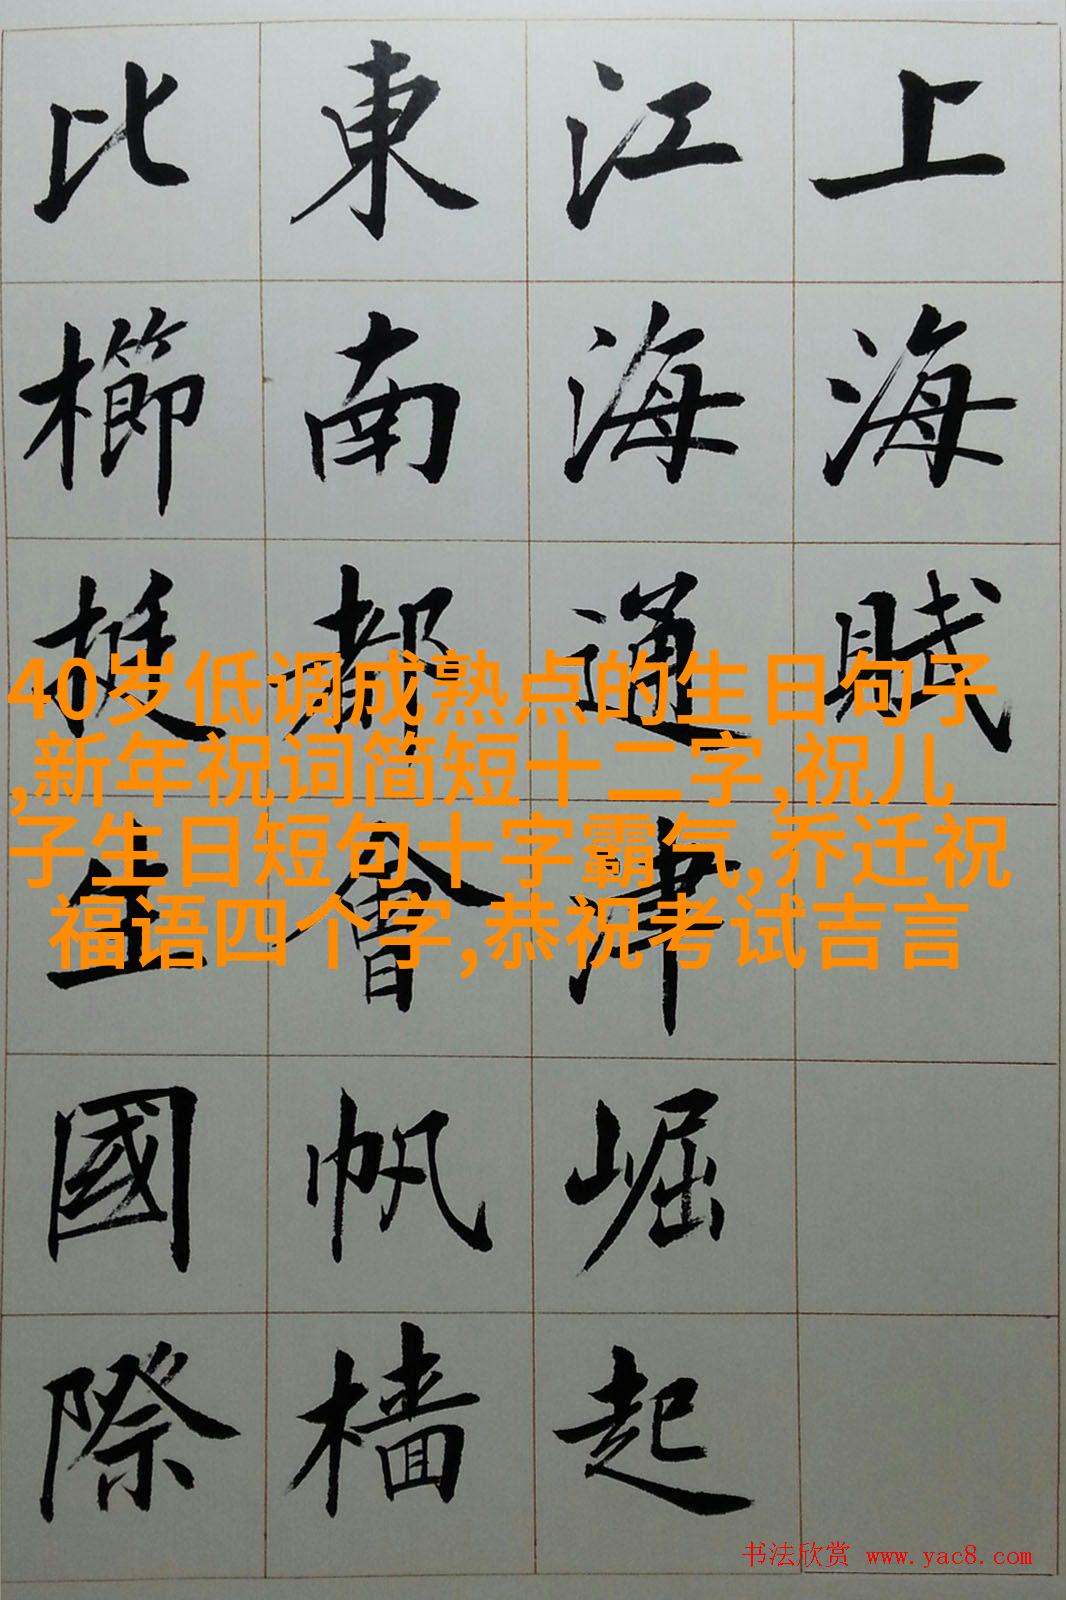 上海賦
江海通津崛起
東南都會帆檣
比櫛挺立國際
40岁低调成熟点的生日句子
,新年祝词简短十二字,祝儿
子生日短句十字霸气,乔迁祝
福语四个字,恭祝考试吉言
书法欣赏 www.yac8.com